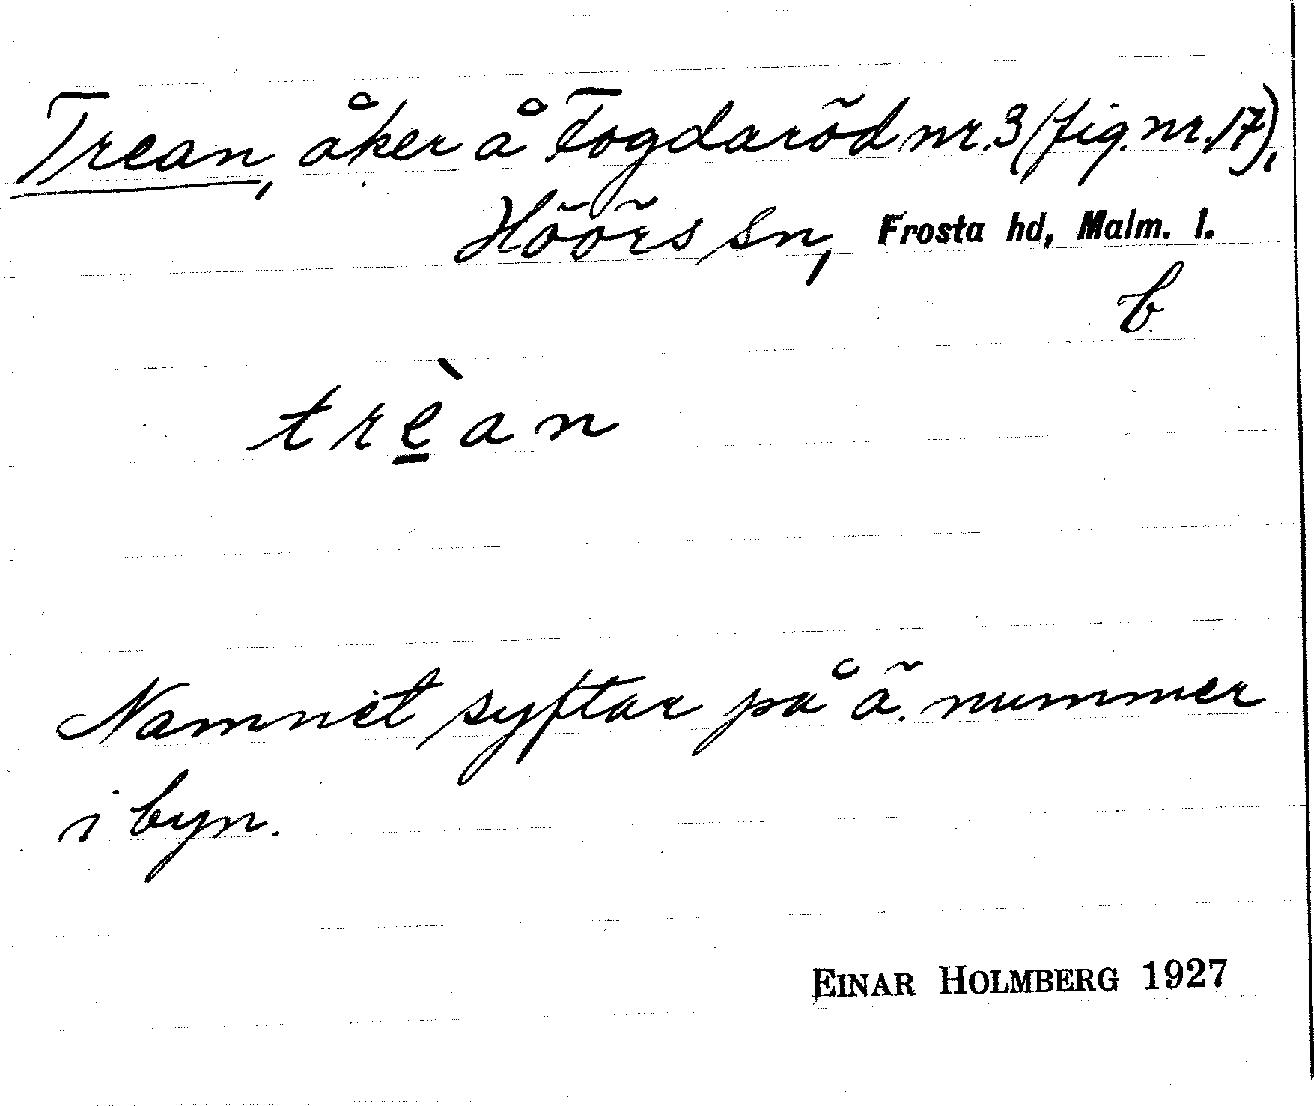 Trean, åker å Fogdaröd nr. 3 (fig. nr. 17),
Höörs sn, Frosta hd, Malm. l.
b
trèan
Namnet syftar på ä. nummer
i byn.
EINAR HOLMBERG 1927